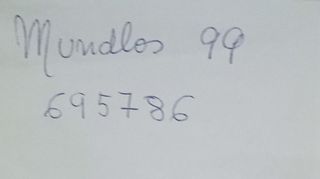 Mundlos 99
695786